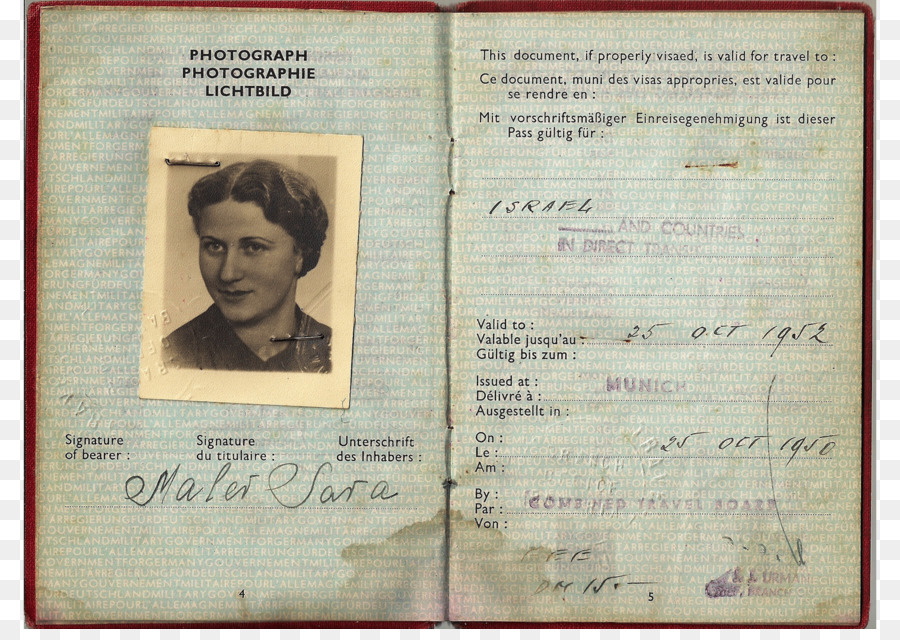 PHOTOGRAPH
PHOTOGRAPHIE
LICHTBILD
Signature of bearer :
Signature du titulaire :
Unterschrift des Inhabers :
Maler Sara
4
This document, if properly visaed, is valid for travel to :
Ce document, muni des visas appropries, est valide pour
se rendre en :
Mit vorschriftsmäßiger Einreisegenehmigung ist dieser
Pass gültig für :
ISRAEL
AND COUNTRIES
IN DIRECT
Valid to :
Valable jusqu'au : 25 OCT 1952
Gültig bis zum :
Issued at :
Délivré à : MUNICH
Ausgestellt in :
On :
Le : 25 OCT 1950
Am :
By :
Par : COMBINED TRAVEL BOARD
Von :
FEE
DM 15.-
5